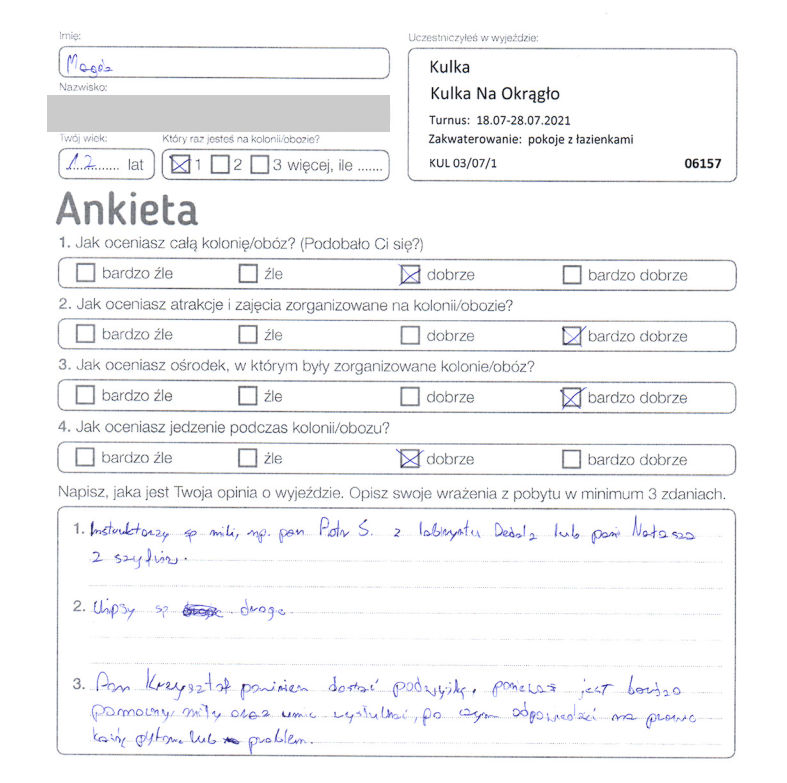 Imię:
Uczestniczyłeś w wyjeździe:
Magda
Kulka
Nazwisko:
Kulka Na Okrągło
Turnus: 18.07-28.07.2021
Twój wiek:
Który raz jesteś na kolonii/obozie?
Zakwaterowanie: pokoje z łazienkami
12 lat
1 2 3 więcej, ile .......
KUL 03/07/1
06157
Ankieta
1. Jak oceniasz całą kolonię/obóz? (Podobało Ci się?)
bardzo źle źle dobrze bardzo dobrze
2. Jak oceniasz atrakcje i zajęcia zorganizowane na kolonii/obozie?
bardzo źle źle dobrze bardzo dobrze
3. Jak oceniasz ośrodek, w którym były zorganizowane kolonie/obóz?
bardzo źle źle dobrze bardzo dobrze
4. Jak oceniasz jedzenie podczas kolonii/obozu?
bardzo źle źle dobrze bardzo dobrze
Napisz, jaka jest Twoja opinia o wyjeździe. Opisz swoje wrażenia z pobytu w minimum 3 zdaniach.
1. Instruktorzy są mili, np. pan Piotr S. z labiryntu Dedala lub pani Natasza
z szyfrów.
2. Chipsy są drogie.
3. Pan Krzysztof powinien dostać podwyżkę, ponieważ jest bardzo
pomocny, miły oraz umie wysłuchać, po czym odpowiedzieć na prawie
każde pytanie lub problem.